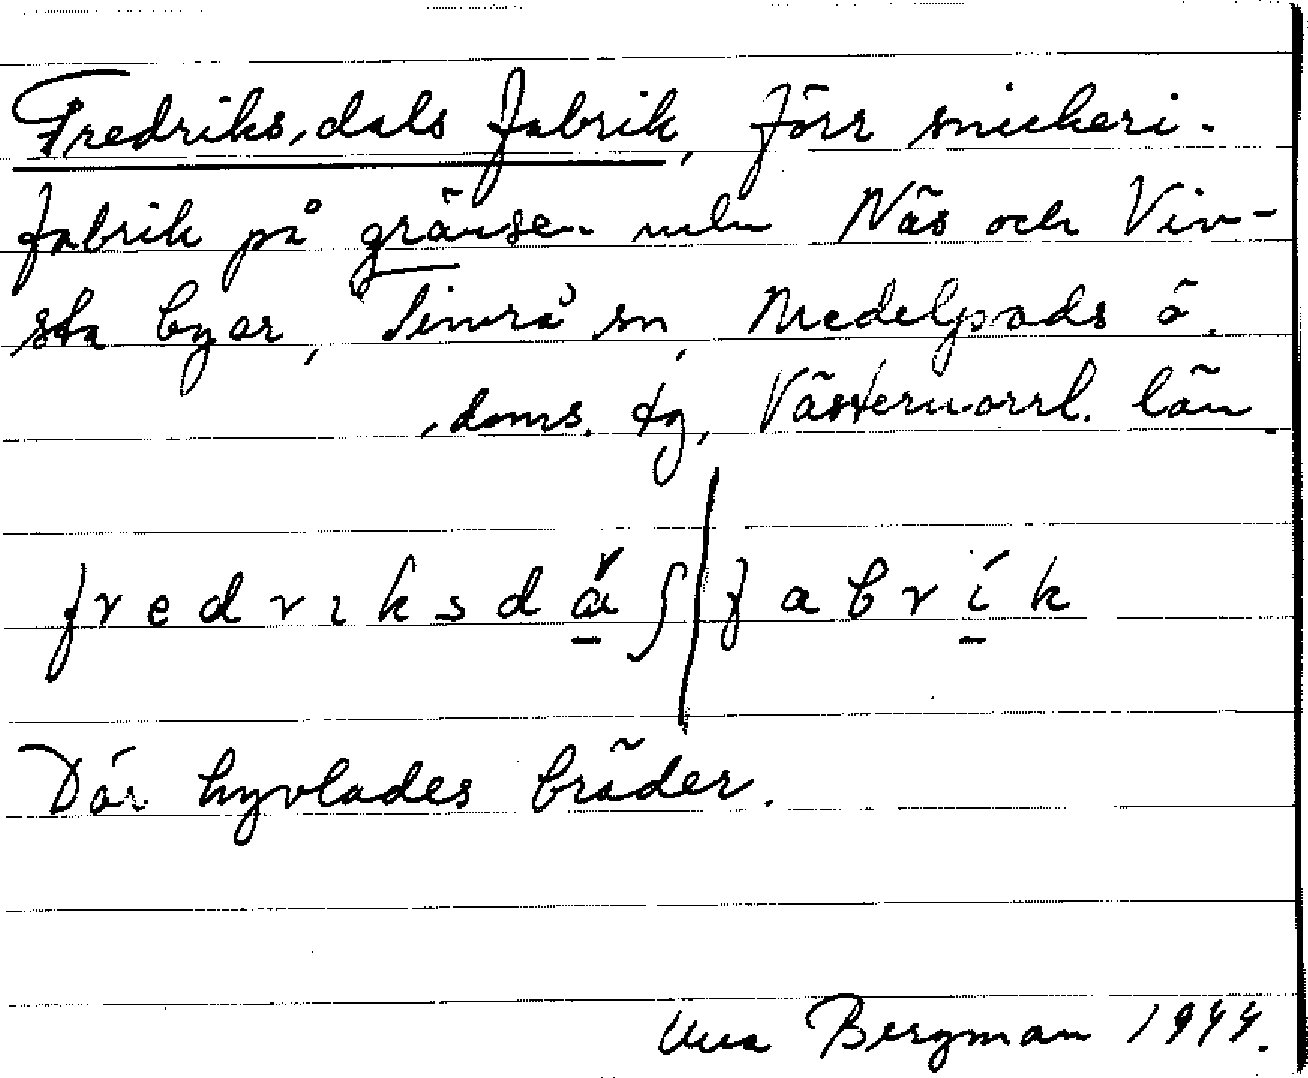 Fredriksdals fabrik, förr snickeri-
fabrik på gränsen mln Näs och Viv-
sta byar, Timrå sn, Medelpads ö.
doms. tg, Västernorrl. län.
fredriksdáʃ | fabrík
Där hyvlades bräder.
Una Bergman 1944.